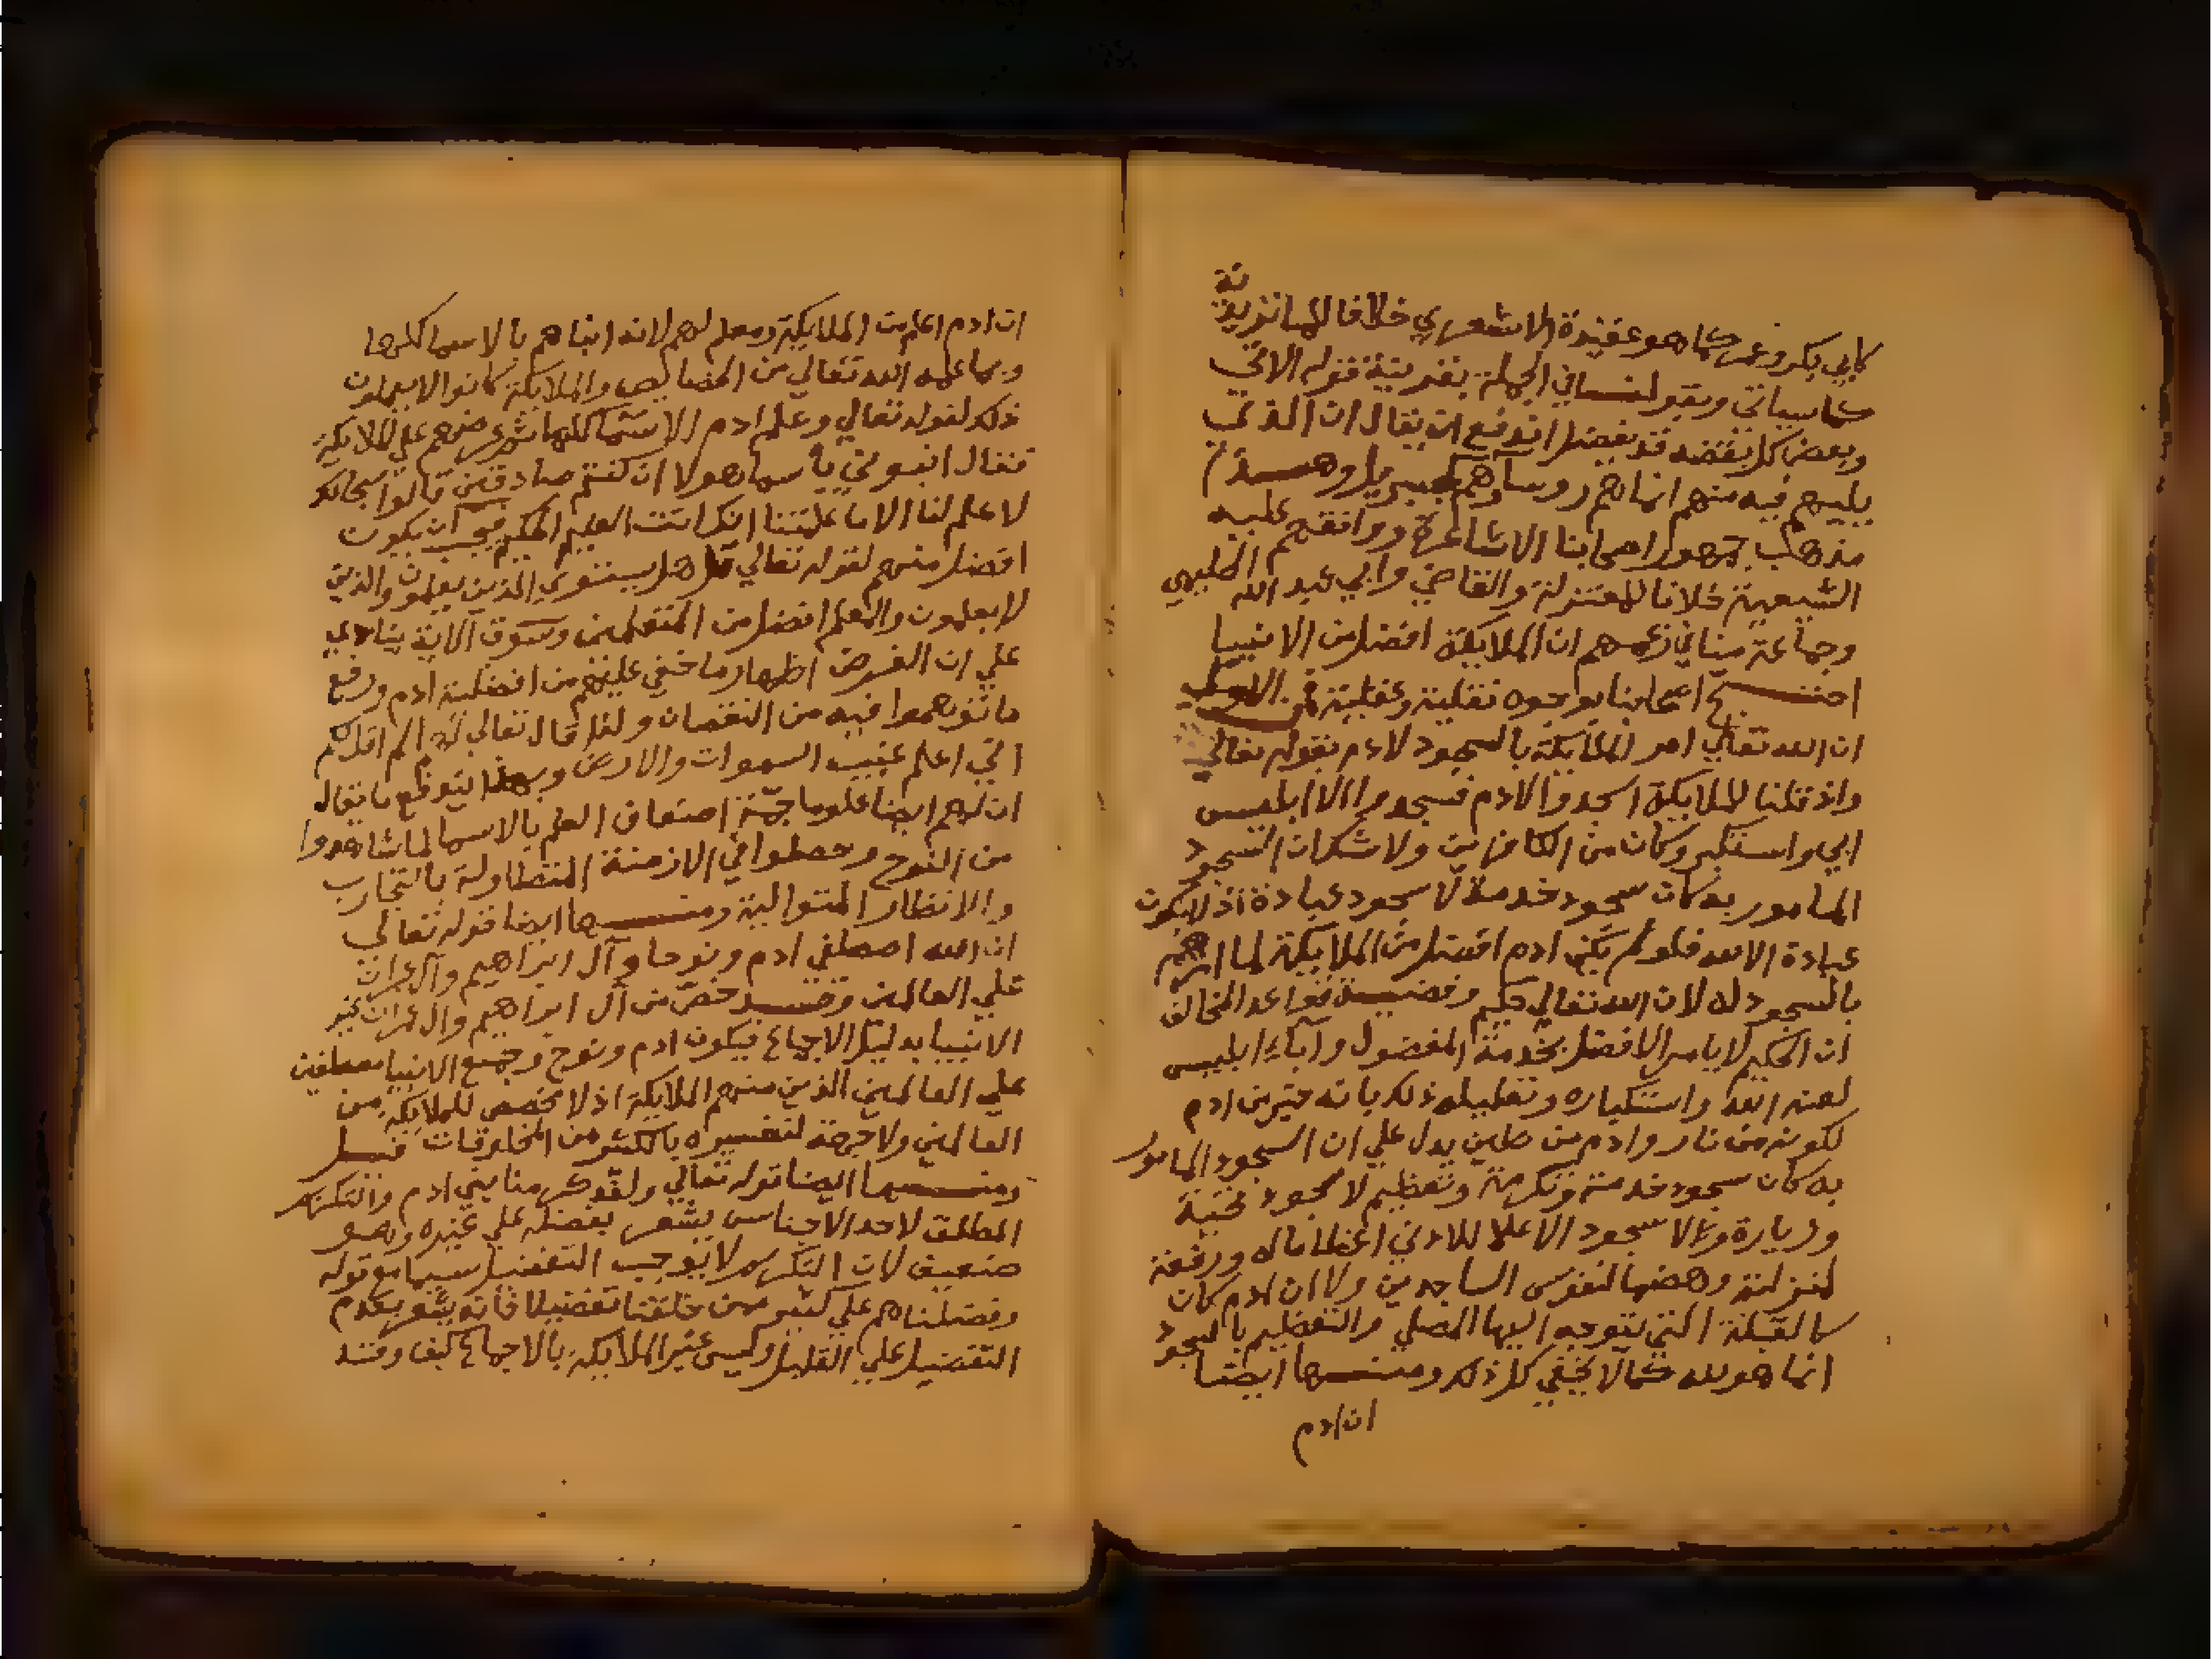 كابي بكر وعمر كما هو عقيدة الاشعري خلافا للماتريدية
كما سياتي وبقولنا في الجملة بقرينة قوله الاتي
وبعض كل بعضه قد يفضل اندفع ان يقال ان الذي
يليهم فيه منهم انما هم روساوهم كجبريل وهذا
مذهب جمهور اصحابنا الاشاعرة ووافقهم عليه
الشيعية خلافا للمعتزلة والقاضي وابي عبد الله الحليمي
وجماعة منا في زعمهم ان الملايكة افضل من الانبيا
احتج اصحابنا بوجوه نقلية وعقلية فمن الاولي
ان الله تعالي امر الملايكة بالسجود لادم بقوله تعالي
واذ قلنا للملايكة اسجدوا لادم فسجدوا الا ابليس
ابي واستكبر وكان من الكافرين ولا شك ان السجود
المامور به كان سجود خدمة لا سجود عبادة اذ لا يكون
عبادة الا لله فلو لم يكن ادم افضل من الملايكة لما امرهم
بالسجود له لان الله تعالي حكيم وقضية قواعد المخالف
ان الحكيم لا يامر الافضل بخدمة المفضول وآباء ابليس
لعنه الله واستكباره وتعليله ذلك بانه خير من ادم
لكونه من نار وادم من طين يدل علي ان السجود المامور
به كان سجود خدمة وتكرمة وتعظيم لا سجود تحية
وزيارة ولا سجود الاعلا للادني اعظاما له ورفعة
لمنزلته وهضما لنفوس الساجدين ولا ان ادم كان
كالقبلة التي يتوجه اليها المصلي والتعظيم بالسجود
انما هو لله كما لا يخفي كل ذلك ومنها ايضا
ان ادم
ان ادم اعلم من الملايكة ومعلم لهم لانه انباهم بالاسما كلها
وبما علمه الله تعالي من الخصايص والملايكة كانوا لا يعلمون
ذلك لقوله تعالي وعلم ادم الاسما كلها ثم عرضهم علي الملايكة
فقال انبوني بأسما هولا ان كنتم صادقين قالوا سبحانك
لا علم لنا الا ما علمتنا انك انت العليم الحكيم فيجب ان يكون
افضل منهم لقوله تعالي قل هل يستوي الذين يعلمون والذين
لا يعلمون والمعلم افضل من المتعلمين وسوق الاية ينادي
علي ان الغرض اظهار ما خفي عليهم من افضلية ادم ورفع
ما توهموا فيه من النقصان ولذا قال تعالي لهم الم اقل لكم
اني اعلم غيب السموات والارض وبهذا يندفع ما يقال
ان لهم ايضا علوما جمة اضعاف العلم بالاسما لما شاهدوا
من اللوح وحصلوا في الازمنة المتطاولة بالتجارب
والانظار المتوالية ومنها ايضا قوله تعالي
ان الله اصطفي ادم ونوحا وآل ابراهيم وآل عمران
علي العالمين وقد خص من آل ابراهيم وال عمران غير
الانبيا بدليل الاجماع فيكون ادم ونوح وجميع الانبيا مصطفين
علي العالمين الذين منهم الملايكة اذ لا مخصص للملايكة من
العالمين ولا جهة لتفسيره بالكثير من المخلوقات قيل
ومنها ايضا قوله تعالي ولقد كرمنا بني ادم والتكريم
المطلق لاحد الاجناس يشعر بفضله علي غيره وهو
ضعيف لان التكريم لا يوجب التفضيل سيما مع قوله
وفضلناهم علي كثير ممن خلقنا تفضيلا فانه يشعر بعدم
التفضيل علي القليل وليس غير الملايكة بالاجماع كيف وقد